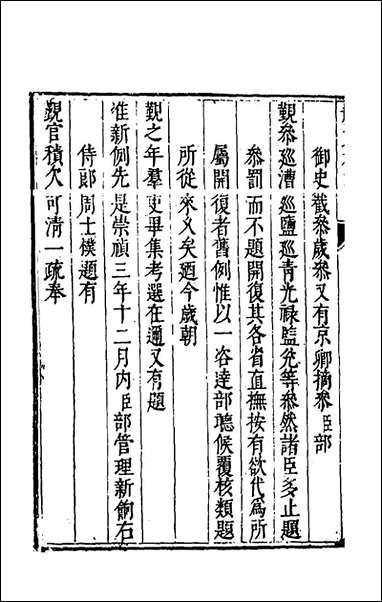 御史截參歲參又有京卿摘參臣部
覲參巡漕巡鹽巡青光祿監兌等參然諸臣多止題
參罰而不題開復其各省直撫按有欲代爲所
屬開復者舊例惟以一咨達部聽候覆核類題
所從來乂矣廼今歲朝
覲之年羣吏畢集考選在邇又有題
准新例先是崇禎三年十二月內臣部管理新餉右
侍郎周士樸題有
覲官積欠可清一疏奉